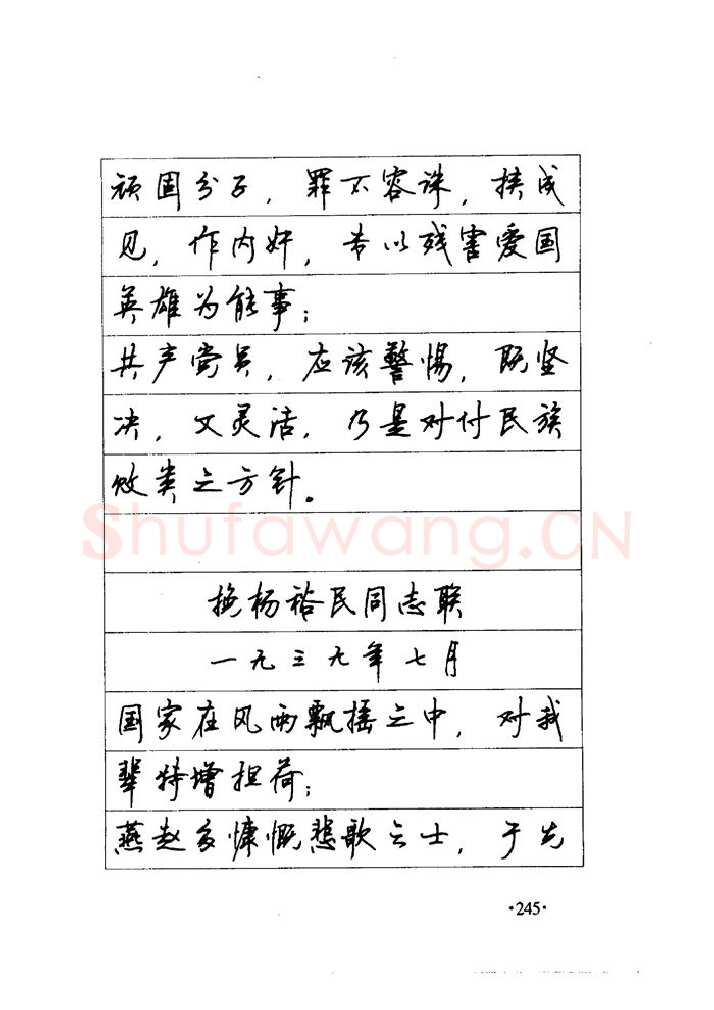 顽固分子，罪不容诛，挟成
见，作内奸，专以残害爱国
英雄为能事；
共产党员，应该警惕，既坚
决，又灵活，乃是对付民族
败类之方针。
Shufawang.CN
挽杨裕民同志联
一九三九年七月
国家在风雨飘摇之中，对我
辈特增担荷；
燕赵多慷慨悲歌之士，于先
·245·